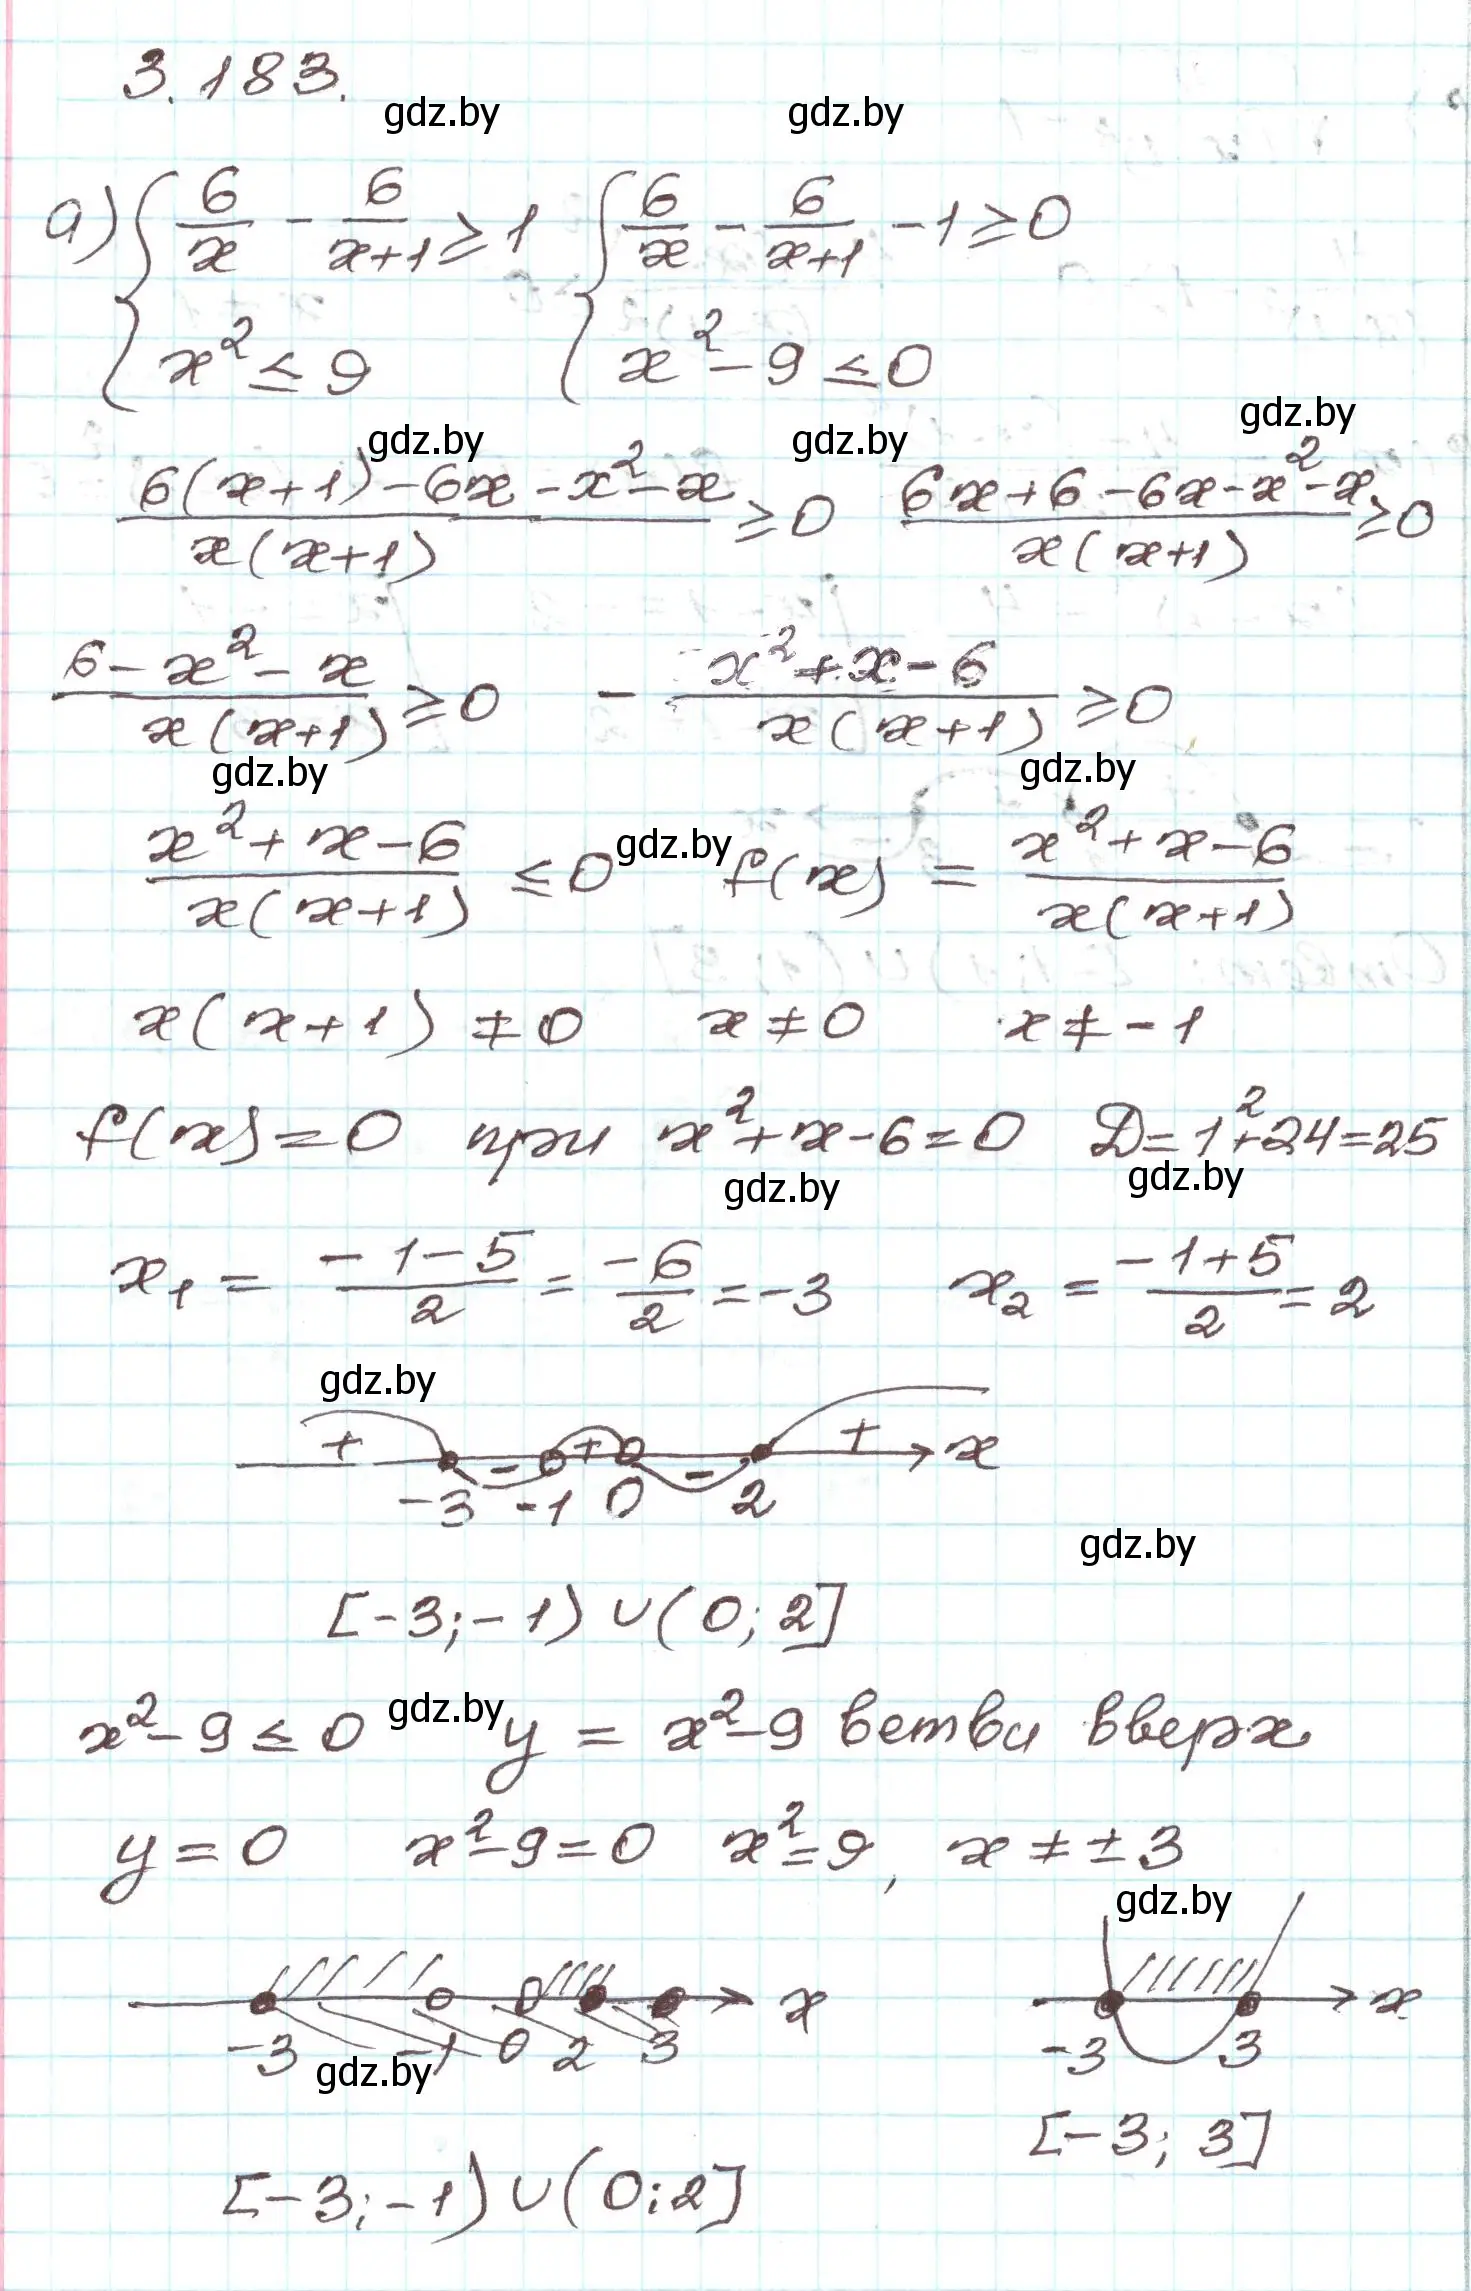 3.183.
gdz.by gdz.by
а) { 6/x - 6/(x+1) ≥ 1 { 6/x - 6/(x+1) - 1 ≥ 0
x² ≤ 9 x² - 9 ≤ 0
gdz.by gdz.by gdz.by
(6(x+1) - 6x - x² - x)/(x(x+1)) ≥ 0 (6x + 6 - 6x - x² - x)/(x(x+1)) ≥ 0
(6 - x² - x)/(x(x+1)) ≥ 0 - (x² + x - 6)/(x(x+1)) ≥ 0
gdz.by gdz.by
(x² + x - 6)/(x(x+1)) ≤ 0 gdz.by f(x) = (x² + x - 6)/(x(x+1))
x(x+1) ≠ 0 x ≠ 0 x ≠ -1
f(x) = 0 при x² + x - 6 = 0 D = 1² + 24 = 25
gdz.by gdz.by
x₁ = (-1-5)/2 = -6/2 = -3 x₂ = (-1+5)/2 = 2
gdz.by
+ - + - + x
-3 -1 0 2
gdz.by
[-3; -1) ∪ (0; 2]
x² - 9 ≤ 0 gdz.by y = x² - 9 ветви вверх
y = 0 x² - 9 = 0 x² = 9, x ≠ ± 3
gdz.by
x x
-3 -1 0 2 3 -3 3
gdz.by
[-3; 3]
[-3; -1) ∪ (0; 2]